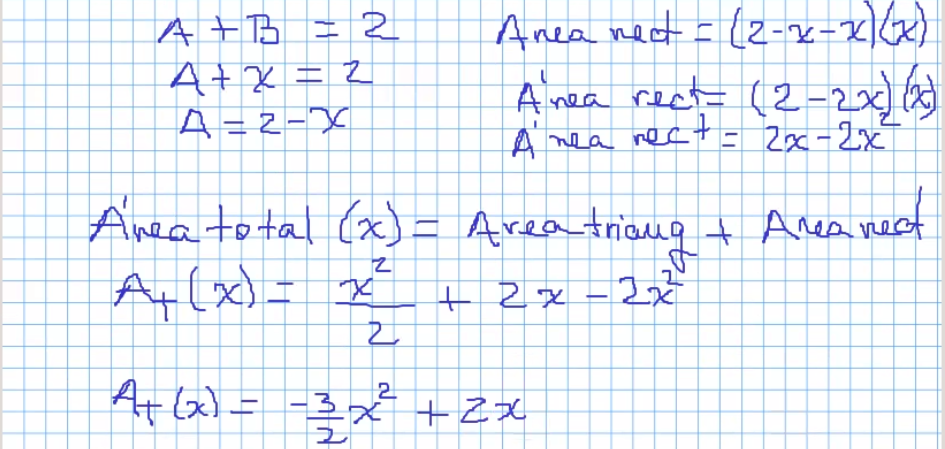 A + B = 2
A + x = 2
A = 2 - x
Area rect = (2-x-x)(x)
Área rect = (2-2x)(x)
Área rect = 2x-2x²
Área total (x) = Area triang + Area rect
A_T(x) = x²/2 + 2x - 2x²
A_T(x) = -3/2 x² + 2x